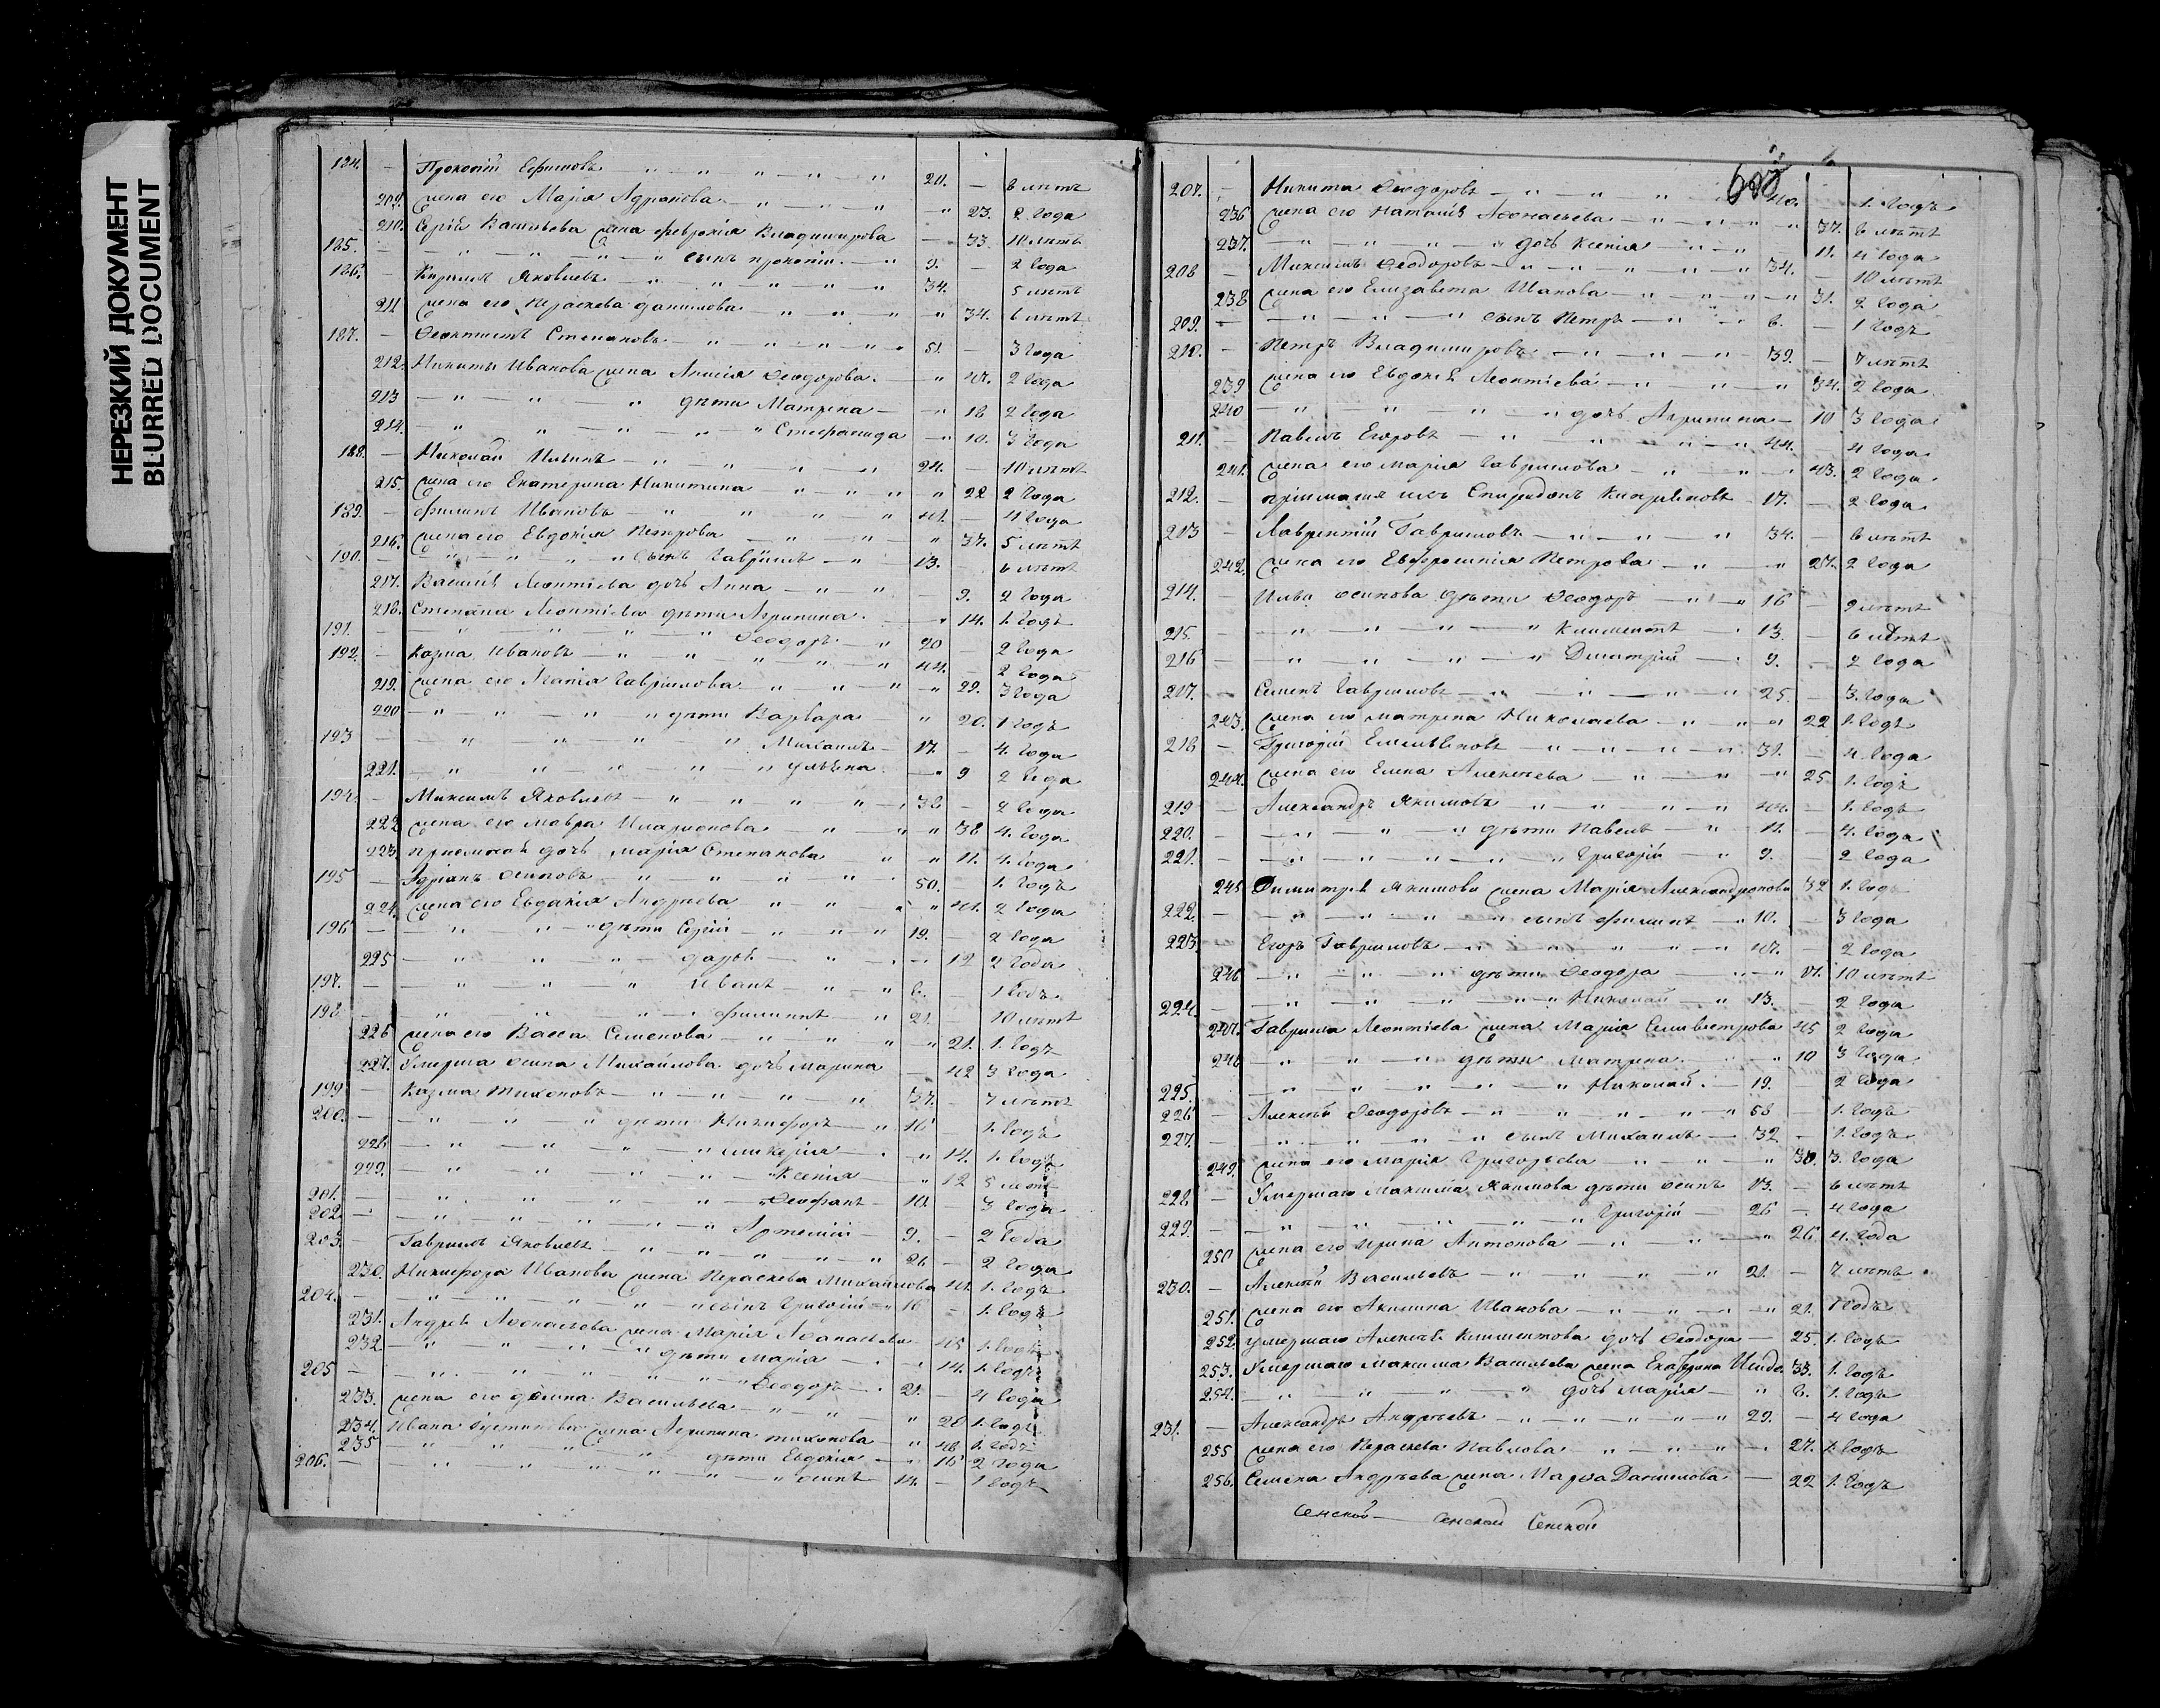 НЕРЕЗКИЙ ДОКУМЕНТ
BLURRED DOCUMENT
184. — Прокопій Ефимовъ 20. — 8 лѣтъ
209. жена его Марія Адріанова 23. 2 года
210. Сергія Васильева жена Февронія Владимирова — 33. 10 лѣтъ
185. сынъ Прокопій 9. — 2 года
186. Кирилъ Яковлевъ 34. 5 лѣтъ
211 жена его Параскева Данилова 34. 6 лѣтъ
187. — Феоктистъ Степановъ 51. — 3 года
212. Никиты Иванова жена Анисія Феодорова 47. 2 года
213 дѣти Матрена 18 2 года
214. Стефанида 10. 3 года
188. — Николай Ильинъ 24. — 10 лѣтъ
215. жена его Екатерина Никитина 22 2 года
189. — Филипъ Ивановъ 41. — 4 года
216. жена его Евдокія Петрова 37. 5 лѣтъ
190. сынъ Гавріилъ 13. 6 лѣтъ
217. Василія Леонтіева дочь Анна 9. 2 года
218. Степана Леонтіева дѣти Агрипина 14. 1. годъ
191. Феодоръ 20 2 года
192. Козма Ивановъ 44. 2 года
219. жена его Агапія Гаврилова 29. 3 года
220 дѣти Варвара 20. 1 годъ
193 — Михаилъ 17. — 4 года
221. Ульяна 9 2 года
194. — Максимъ Яковлевъ 38 — 2 года
222 жена его Мавра Иларіонова 38 4. года
223. пріемная дочь Марія Степанова 11. 4. года
195 — Адріанъ Осиповъ 50. 1. годъ
224. жена его Евдокія Андреева 41. 2 года
196 — дѣти Сергій 19. — 2 года
225 Дарья 12 2 года
197. — Иванъ 6. — 1 годъ
198 — Филиппъ 21. 10 лѣтъ
226 жена его Васса Семенова 21. 1. годъ
227. Умерша Осипа Михайлова дочь Марина 42 3 года
199 — Козма Тихоновъ 37. — 7 лѣтъ
200. — дѣти Никифоръ 16 1. годъ
228 Гликерія 14. 1. годъ
229. Ксенія 12 5 лѣтъ
201. — Феофанъ 10. — 3 года
202. — Артемій 9. — 2 года
203. Гавріилъ Яковлевъ 26 — 2 года
230. Никифора Иванова жена Параскева Михайлова 41. 1. годъ
204. — сынъ Григорій 16 — 1. годъ
231. Андрея Афонасьева жена Марія Афанасьева 45 1. годъ
232. дѣти Марія 14. 1. годъ
205 — Феодоръ 21. — 4 года
233. жена его Домна Васильева 20 1. годъ
234. Ивана жена Агрипина Тихонова 46 1. годъ
235 дѣти Евдокія 16 2 года
206. — Осипъ 14. — 1 годъ
207. — Никита Феодоровъ 40. 1. годъ
236 жена его Наталія Афонасьева 37. 6 лѣтъ
237. дочь Ксенія 11. 4 года
208 — Максимъ Феодоровъ 34. — 10 лѣтъ
238 жена его Елизавета Иванова 31. 2 года
209. — сынъ Петръ 6. — 1 годъ
210. — Петръ Владимировъ 39. — 7 лѣтъ
239 жена его Евдокія Леонтіева 34. 2 года
240 дочь Агрипина 10 3 года
211. — Павелъ Егоровъ 44. 4 года
241. жена его Марія Гаврилова 43. 2 года
212. — Спиридонъ Кипріяновъ 17. — 2 года
213 — Лаврентій Гавриловъ 34. — 6 лѣтъ
242. жена его Евфросинія Петрова 27. 2 года
214. — Ильи Осипова дѣти Феодоръ 16 — 9 лѣтъ
215. — Климентъ 13. — 6 лѣтъ
216 — Дмитрій 9. — 2 года
217. — Семенъ Гавриловъ 25. — 3. года
243. жена его Матрена Николаева 22 1. годъ
218 — Григорій Емельяновъ 31. — 4. года
244. жена его Елена Алексѣева 25 1. годъ
219 — Александръ Якимовъ 44. — 1. годъ
220. — дѣти Павелъ 11. — 4. года
221. — Григорій 9. — 2 года
245 Димитрія Якимова жена Марія Александронова 32 1. годъ
222. — сынъ Филипъ 10. — 3 года
223. Егоръ Гавриловъ 47. — 2 года
246 дѣти Феодора 17. 10 лѣтъ
224. Николай 13. — 2 года
247. Гаврила Леонтіева жена Марія Селивестрова 45 2 года
248 дѣти Матрена 10 3 года
225. Николай 19. — 2 года
226 — Алексѣй Феодоровъ 58 — 1. годъ
227. — сынъ Михаилъ 32 — 1. годъ
249. жена его Марія Григорьева 30. 3. года
228 — Умершаго Максима Якимова дѣти Осипъ 13. — 6 лѣтъ
229. — Григорій 26 — 4 года
250 жена его Ирина Антонова 26 4. года
230. — Алексѣй Васильевъ 21. — 7 лѣтъ
251. жена его Акилина Иванова 21. 1 годъ
252. умершаго Алексѣя Климентова дочь Феодора — 25. 1. годъ
253. Умершаго Максима Васильева жена Екатерина 33. 1. годъ
254. дочь Марія 6. 1. годъ
231. — Александръ Андреевъ 29. — 4 года
255 жена его Параскева Павлова 27. 1. годъ
256. Семена Андреева жена Марфа Данилова — 22 1. годъ
Сенской Сенской Сенской